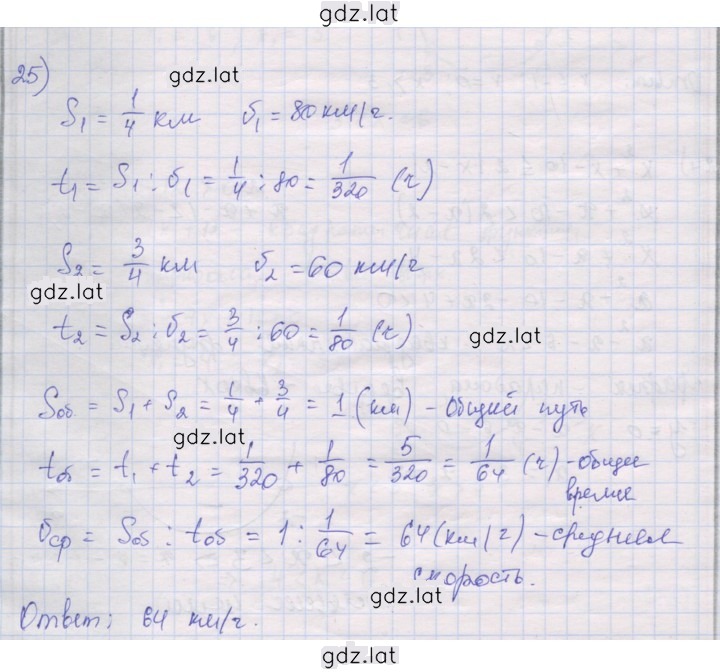 gdz.lat
25)
gdz.lat
S₁ = 1/4 км   υ₁ = 80 км/ч.
t₁ = S₁ : υ₁ = 1/4 : 80 = 1/320 (ч)
S₂ = 3/4 км   υ₂ = 60 км/ч
gdz.lat
t₂ = S₂ : υ₂ = 3/4 : 60 = 1/80 (ч)
gdz.lat
Sоб = S₁ + S₂ = 1/4 + 3/4 = 1 (км) - общий путь
gdz.lat
tоб = t₁ + t₂ = 1/320 + 1/80 = 5/320 = 1/64 (ч) - общее
время
υср = Sоб : tоб = 1 : 1/64 = 64 (км/ч) - средняя
скорость.
gdz.lat
Ответ: 64 км/ч.
gdz.lat